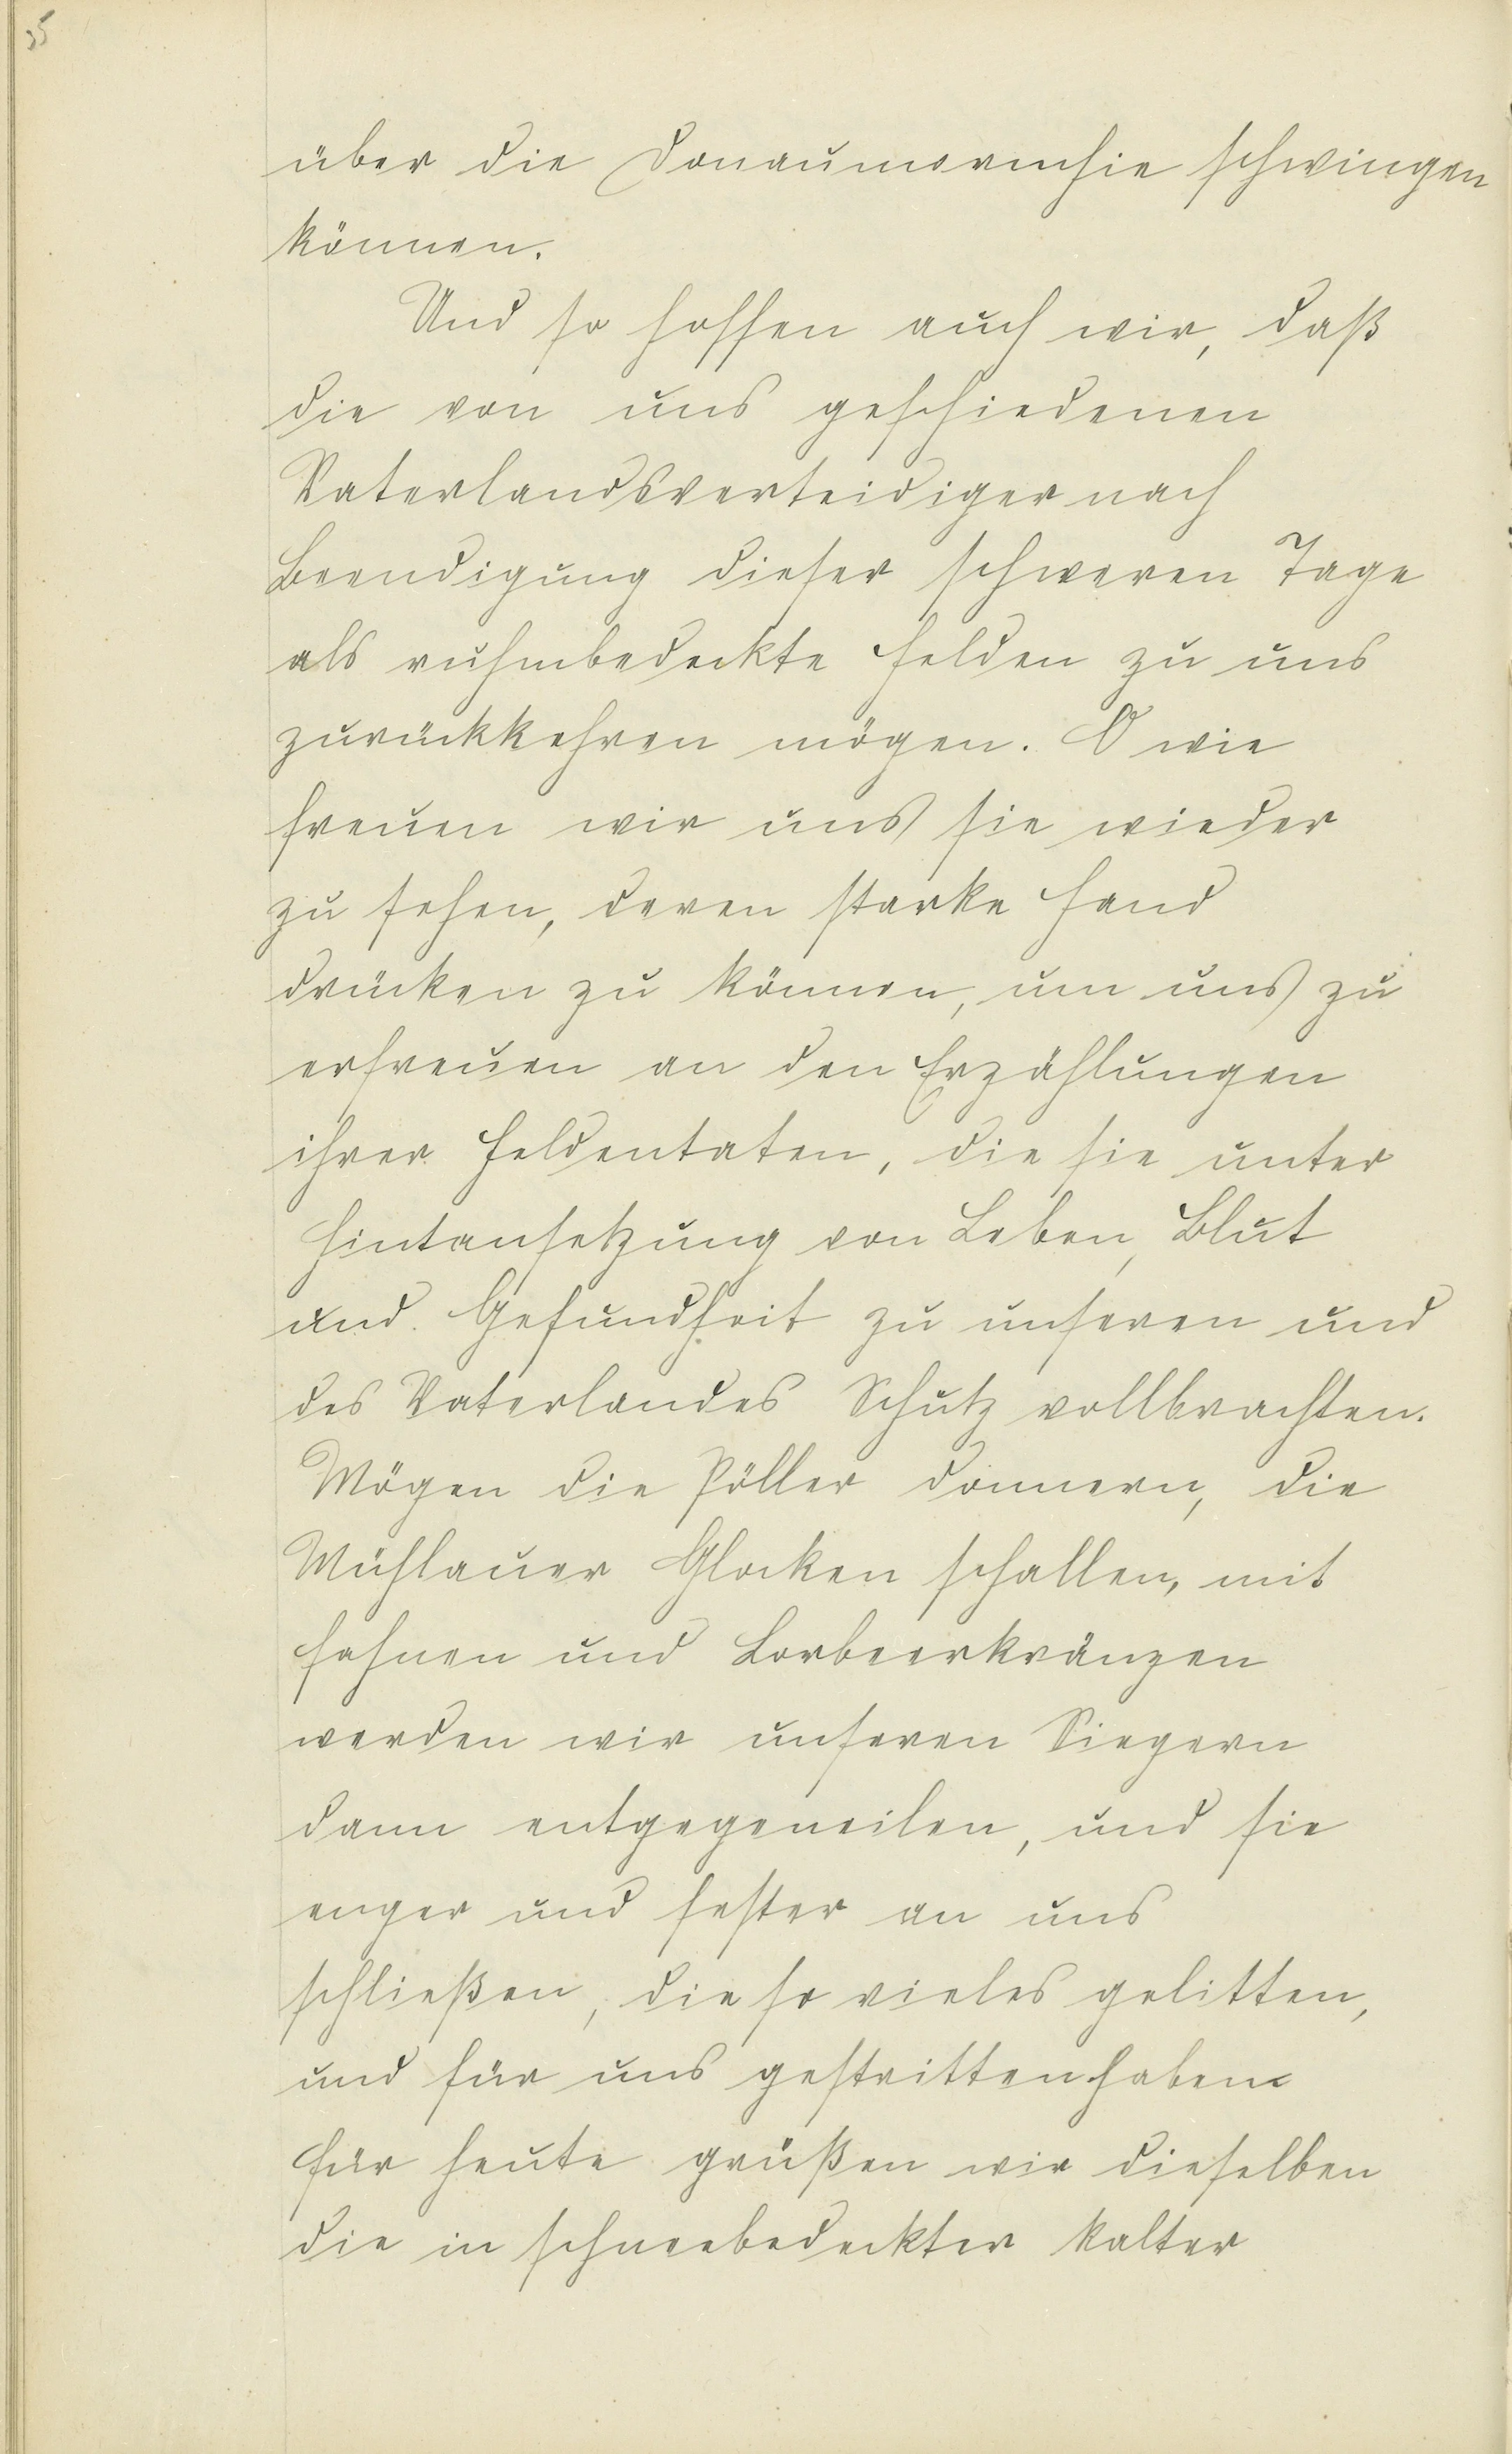 35
über die Donaumonarchie schwingen
können.
Und so hoffen auch wir, daß
die von uns geschiedenen
Vaterlandsverteidiger nach
Beendigung dieser schweren Tage
als ruhmbedeckte Helden zu uns
zurückkehren mögen. O wie
freuen wir uns sie wieder
zu sehen, deren starke Hand
drücken zu können, um uns zu
erfreuen an den Erzählungen
ihrer Heldentaten, die sie unter
Hintansetzung von Leben, Blut
und Gesundheit zu unseren und
des Vaterlandes Schutz vollbrachten.
Mögen die Pöller donnern, die
Mühlauer Glocken schallen, mit
Fahnen und Lorbeerkränzen
werden wir unseren Siegern
dann entgegeneilen, und sie
enger und fester an uns
schließen, die so vieles gelitten,
und für uns gestritten haben.
Für heute grüßen wir dieselben
die in schneebedeckter kalter